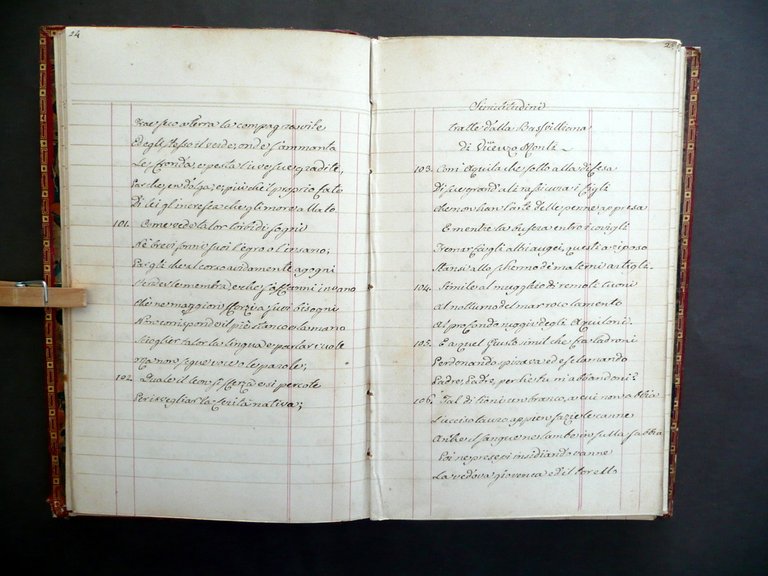 24
Trae seco a terra la compagna vite
Ed egli stesso il verde, onde s'ammanta
Le sfronda, e pesta l'uve sue gradite,
Par che sen dolga, e più che il proprio fato
Di lei gl'incresca che gli more allato
101. Come vede talor torbidi sogni
Ne' brevi sonni suoi l'egro o l'insano;
Pargli che al corso avidamente agogni
Stender le membra, e che s'affanni invano
Che ne' maggiori sforzi a' suoi bisogni
Non corrisponde il piè stanco e la mano
Scioglier talor la lingua e parlar vuole
Ma non segue la voce o le parole;
102. Quale il leon si sferza e si percote
Per isvegliar la ferità nativa;
25
Similitudini
tratte dalla Basvilliana
di Vincenzo Monti
103. Com'Aquila che sotto alla difesa
Di sue grandi ale rassicura i figli
Che non han l'arte delle penne appresa
E mentre la bufera entro i covigli
Tremar fa gli altri augei, questi a riposo
Stansi allo schermo de' materni artigli.
104. Simile al mugghio di remoti tuoni
Al notturno del mar roco lamento
Al profondo muggir degli Aquiloni.
105. E a quel Giusto simil che fra' ladroni
Perdonando spirava ed esclamando
Padre, Padre, perchè tu m'abbandoni?
106. Tal di lioni un branco, a cui non abbia
L'ucciso tauro appien sazie le canne
Anche il sangue ne lambon sulla sabbia
Poi ne' presepi insidiando vanne
La vedova giovenca ed il torello